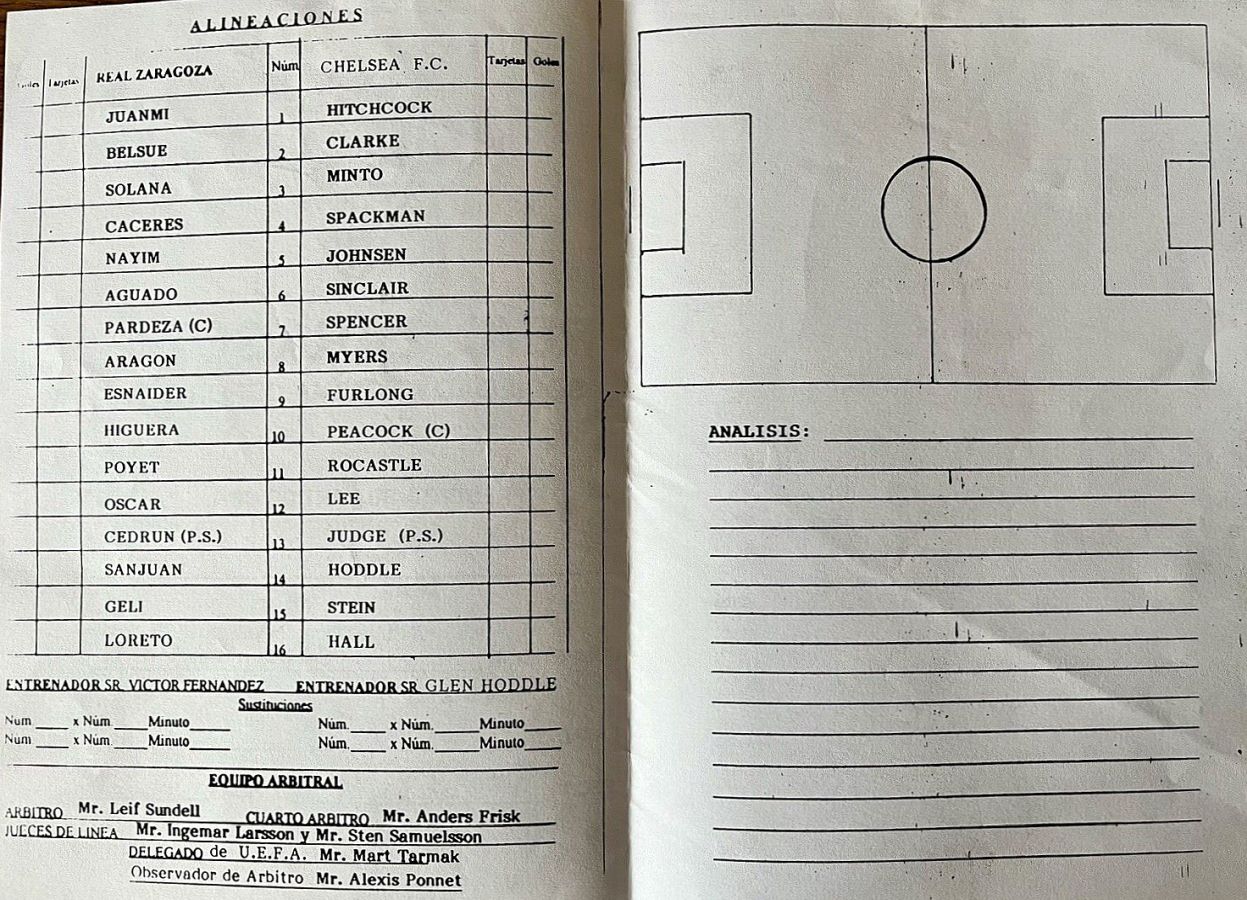 ALINEACIONES
Goles Tarjetas REAL ZARAGOZA Núm CHELSEA F.C. Tarjetas Goles
JUANMI 1 HITCHCOCK
BELSUE 2 CLARKE
SOLANA 3 MINTO
CACERES 4 SPACKMAN
NAYIM 5 JOHNSEN
AGUADO 6 SINCLAIR
PARDEZA (C) 7 SPENCER
ARAGON 8 MYERS
ESNAIDER 9 FURLONG
HIGUERA 10 PEACOCK (C)
POYET 11 ROCASTLE
OSCAR 12 LEE
CEDRUN (P.S.) 13 JUDGE (P.S.)
SANJUAN 14 HODDLE
GELI 15 STEIN
LORETO 16 HALL
ENTRENADOR SR. VICTOR FERNANDEZ ENTRENADOR SR. GLEN HODDLE
Sustituciones
Núm ____ x Núm. ____ Minuto ____ Núm. ____ x Núm. ____ Minuto ____
Núm ____ x Núm. ____ Minuto ____ Núm. ____ x Núm. ____ Minuto ____
EQUIPO ARBITRAL
ARBITRO Mr. Leif Sundell CUARTO ARBITRO Mr. Anders Frisk
JUECES DE LINEA Mr. Ingemar Larsson y Mr. Sten Samuelsson
DELEGADO de U.E.F.A. Mr. Mart Tarmak
Observador de Arbitro Mr. Alexis Ponnet
ANALISIS: